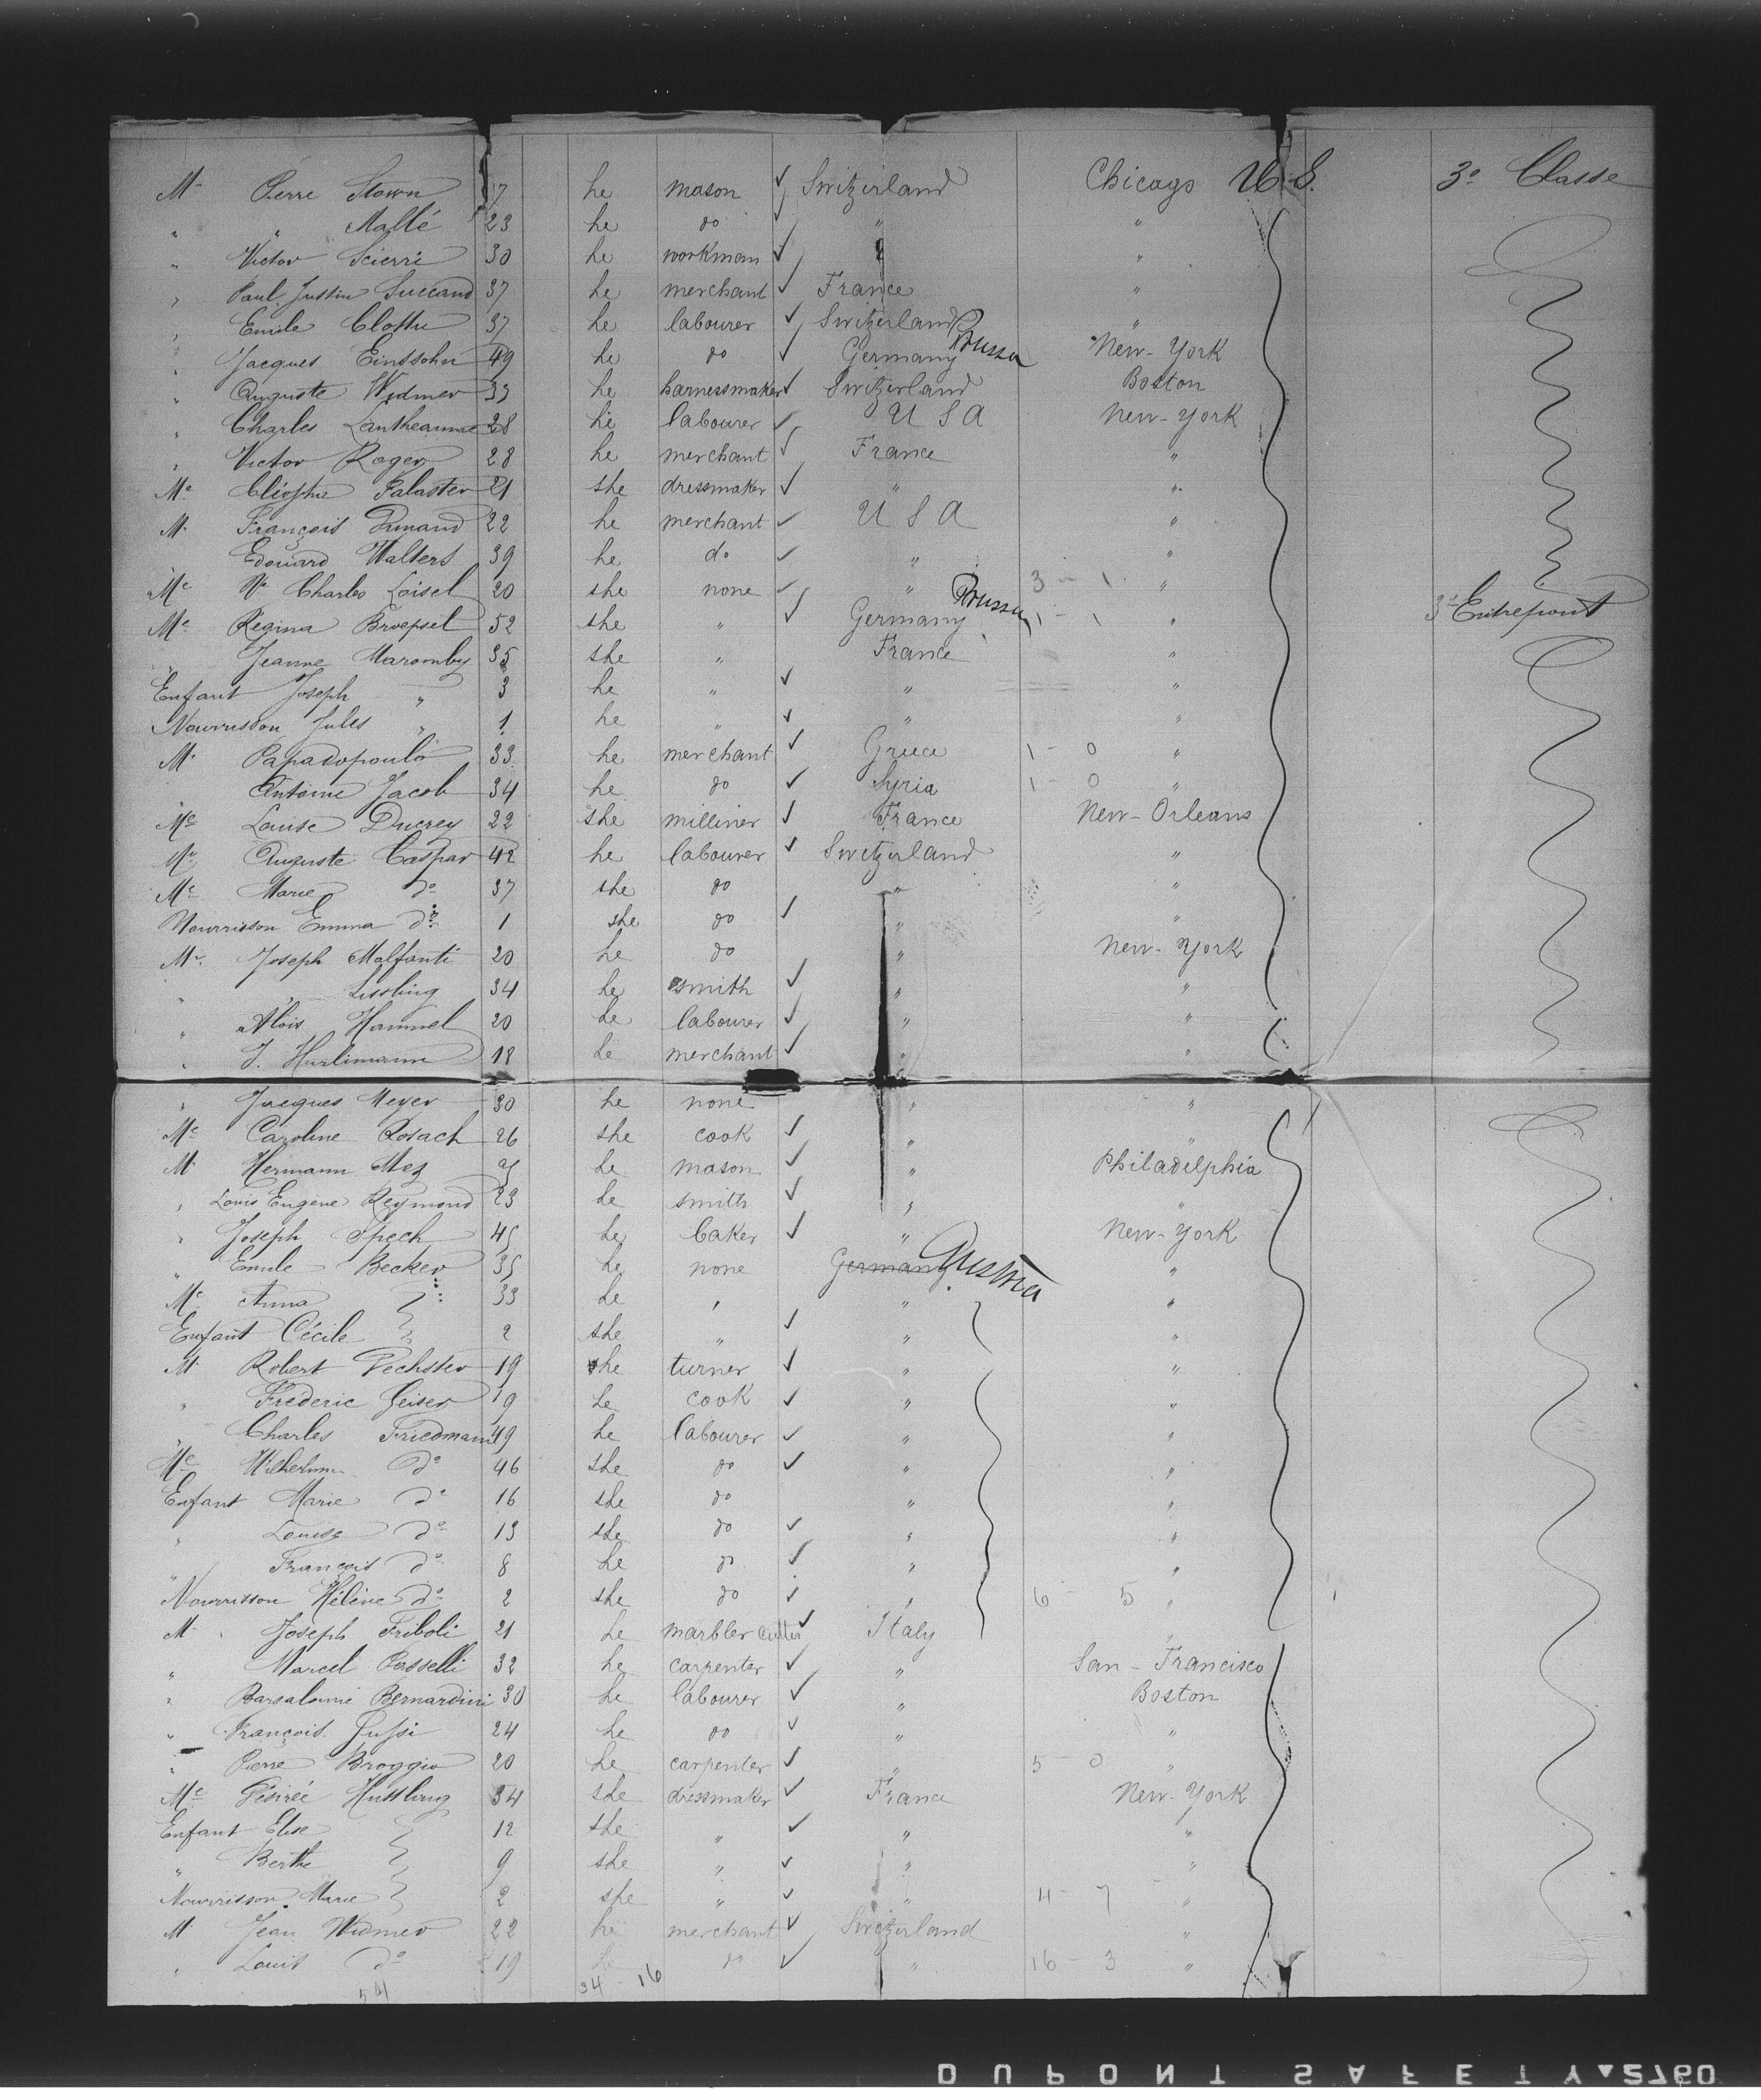 Mr Pierre Stown 17 he mason ✓ Switzerland Chicago U.S. 3e Classe
" " Mallé 23 he do " "
" Victor Scierri 30 he workman ✓ " "
" Paul Justin Succand 37 he merchant ✓ France "
" Emile Clottu 37 he labourer ✓ Switzerland "
" Jacques Einssohn 49 he do ✓ Germany Prussia New-York
" Auguste Widmer 33 he harnessmaker ✓ Switzerland Boston
" Charles Lantheaume 28 he labourer ✓ U S A New-York
" Victor Roger 28 he merchant ✓ France "
Me Cléopha Palaster 21 she dressmaker ✓ " "
M. François Durand 22 he merchant ✓ U S A "
Edouard Walters 39 he do ✓ " "
Me Ve Charles Loisel 20 she none ✓ " 3 - 1 "
Me Regina Broepsel 52 she " ✓ Germany Prussia 1 - 1 " 3e Entrepont
" Jeanne Maromby 35 she " France "
Enfant Joseph " 3 he " ✓ " "
Nourrisson Jules " 1 he " ✓ " "
M. Papadopoulo 33 he merchant ✓ Greece 1 - 0 "
Antoine Jacob 34 he do ✓ Syria 1 - 0 "
Me Louise Ducrey 22 she milliner ✓ France New-Orleans
Mr Auguste Caspar 42 he labourer ✓ Switzerland "
Me Marie do 37 she do " "
Nourrisson Emma do 1 she do ✓ " "
Mr. Joseph Malfanti 20 he do " New-York
" " Lissling 34 he smith ✓ " "
" Aloïs Hammel 20 he labourer ✓ " "
" J. Hurlimann 18 he merchant ✓ " "
" Jacques Meyer 30 he none " "
Me Caroline Rosach 26 she cook ✓ " "
M. Hermann Mez he mason ✓ " Philadelphia
" Louis Eugène Reymond 23 he smith ✓ " "
" Joseph Spech 45 he baker ✓ " New-York
" Emile Becker 35 he none Germany Austria "
Me Anna 33 he " " "
Enfant Cécile 2 she " ✓ " "
M. Robert Pechster 19 he turner ✓ " "
" Fréderic Geiser 19 he cook ✓ " "
" Charles Friedmann 49 he labourer ✓ " "
Me Wilhelmn do 46 she do ✓ " "
Enfant Marie do 16 she do " "
" Louise do 13 she do ✓ " "
" François do 8 he do ✓ " "
Nourrisson Hélène do 2 she do ✓ " 6 - 5 "
M. Joseph Friboli 21 he marbler cutter ✓ Italy "
" Marcel Passelli 32 he carpenter ✓ " San-Francisco
" Barsalomé Bernardini 30 he labourer ✓ " Boston
" François Jussi 24 he do ✓ " "
" Pierre Broggio 20 he carpenter ✓ " 5 - 0 "
Me Désirée Hussling 34 she dressmaker ✓ France New-York
Enfant Elise 12 she " ✓ " "
" Berthe 9 she " ✓ " "
Nourrisson Marie 2 she " ✓ " 4 - 7 "
M Jean Widmer 22 he merchant ✓ Switzerland "
" Louis do 19 he do ✓ " 16 - 3 "
54 34 - 16
DUPONT SAFETY 2760